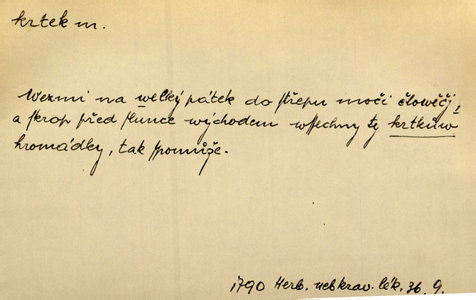 krtek m.
Wezmi na welký pátek do střepu moči člowěčj,
a skrop před slunce východem wssechny ty krtkůw
hromádky, tak spomůže.
1790 Herb. neb krav. lék. 36, 9.